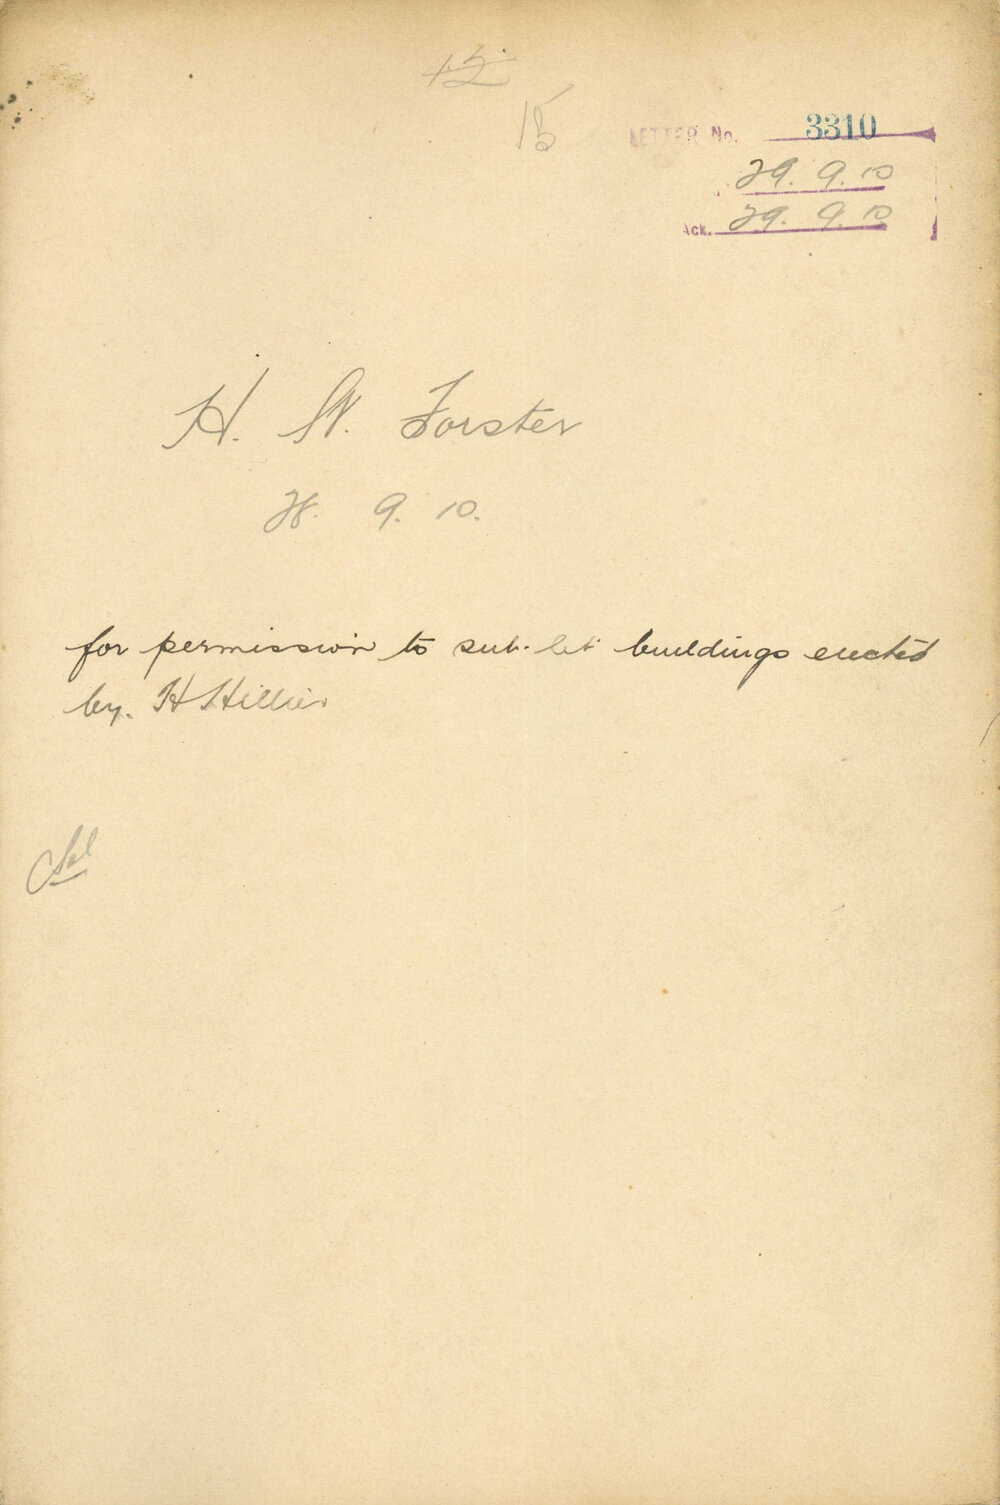 15
LETTER No. 3310
29. 9. 10
Ack. 29. 9. 10
H. W. Forster
28. 9. 10.
for permission to sub-let buildings erected
by. H Hillier